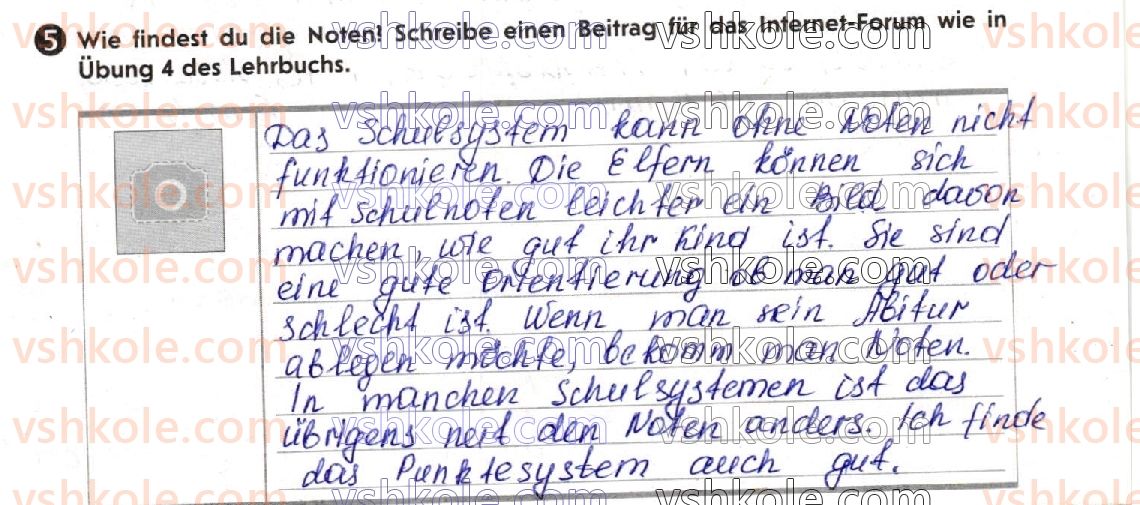 5 Wie findest du die Noten? Schreibe einen Beitrag für das Internet-Forum wie in
Übung 4 des Lehrbuchs.
Das Schulsystem kann ohne Noten nicht
funktionieren. Die Elfern können sich
mit Schulnoten leichter ein Bild davon
machen, wie gut ihr Kind ist. Sie sind
eine gute Orientierung ob man gut oder
schlecht ist. Wenn man sein Abitur
ablegen möchte, bekomm man Noten.
In manchen Schulsystemen ist das
übrigens mit den Noten anders. Ich finde
das Punktesystem auch gut.
vshkole.com